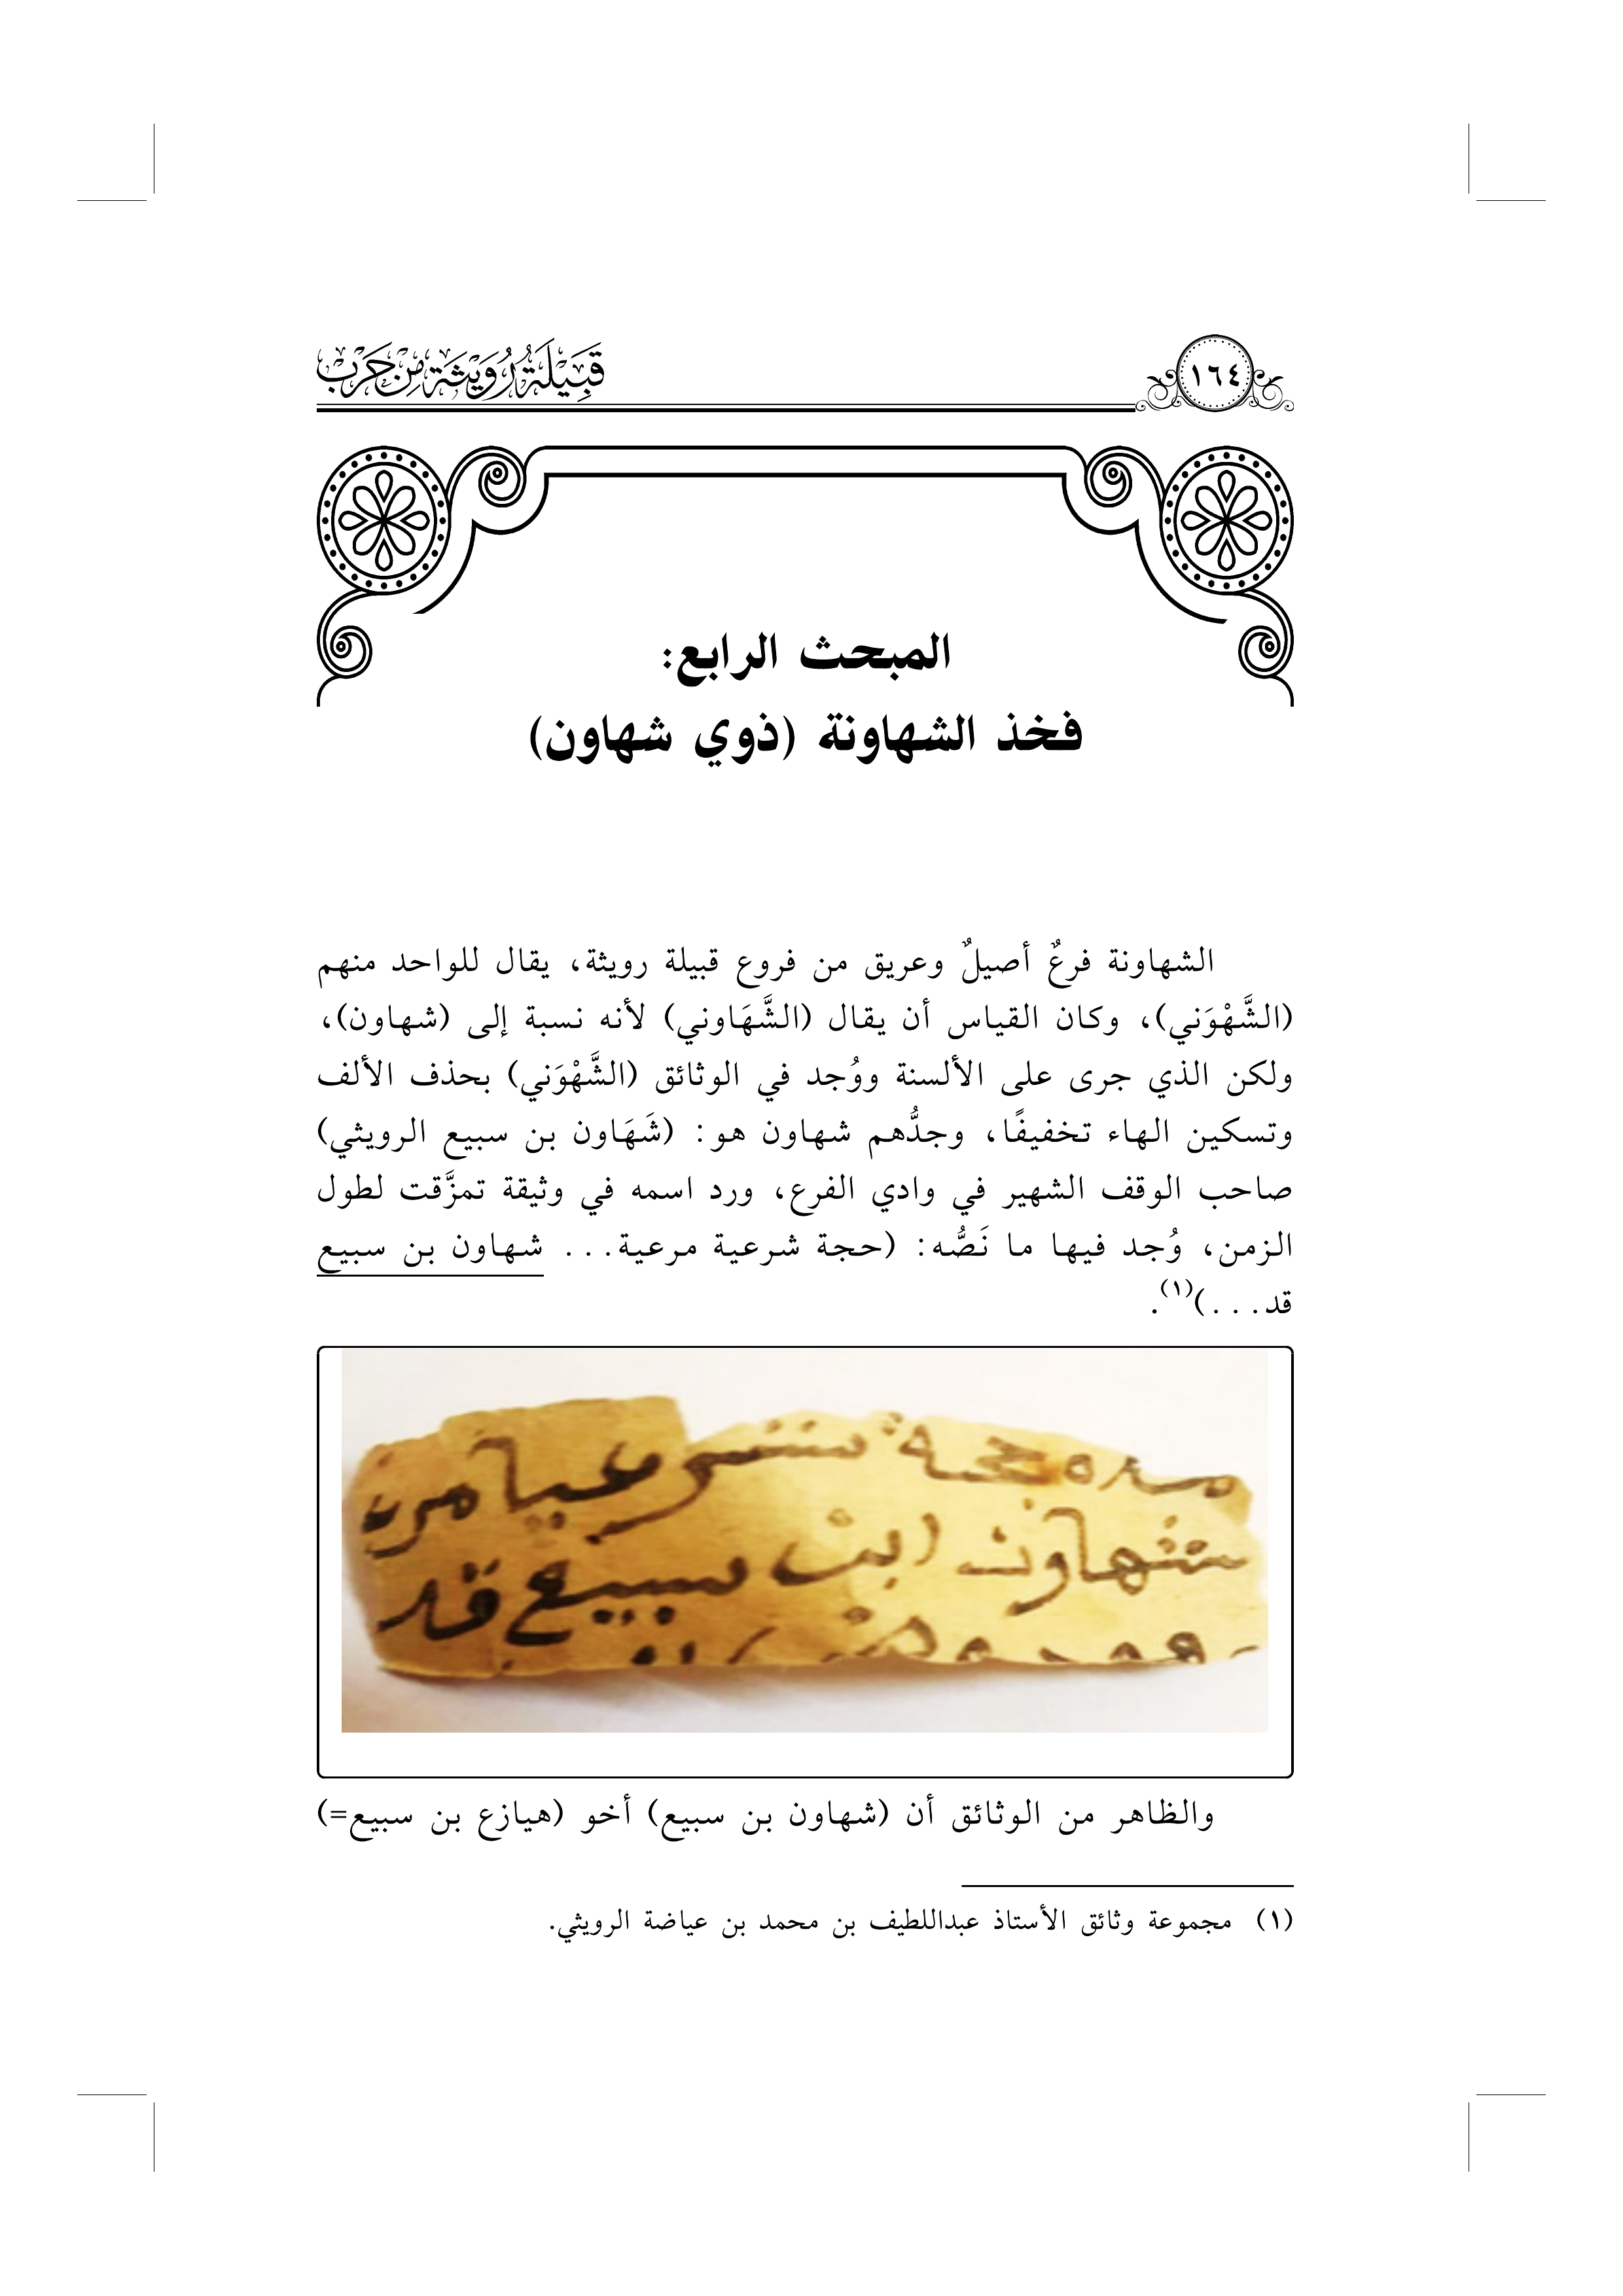 ١٦٤
قَبِيلَةُ رُوَيْثَة مِنْ حَرْب
المبحث الرابع:
فخذ الشهاونة (ذوي شهاون)
الشهاونة فرعٌ أصيلٌ وعريق من فروع قبيلة رويثة، يقال للواحد منهم
(الشَّهْوَني)، وكان القياس أن يقال (الشَّهَاوني) لأنه نسبة إلى (شهاون)،
ولكن الذي جرى على الألسنة ووُجد في الوثائق (الشَّهْوَني) بحذف الألف
وتسكين الهاء تخفيفًا، وجدُّهم شهاون هو: (شَهَاون بن سبيع الرويثي)
صاحب الوقف الشهير في وادي الفرع، ورد اسمه في وثيقة تمزَّقت لطول
الزمن، وُجد فيها ما نَصُّه: (حجة شرعية مرعية... شهاون بن سبيع
قد...)(١).
حجة شرعيا مر
شهاون ابن سبيع قد
والظاهر من الوثائق أن (شهاون بن سبيع) أخو (هيازع بن سبيع=)
(١) مجموعة وثائق الأستاذ عبداللطيف بن محمد بن عياضة الرويثي.